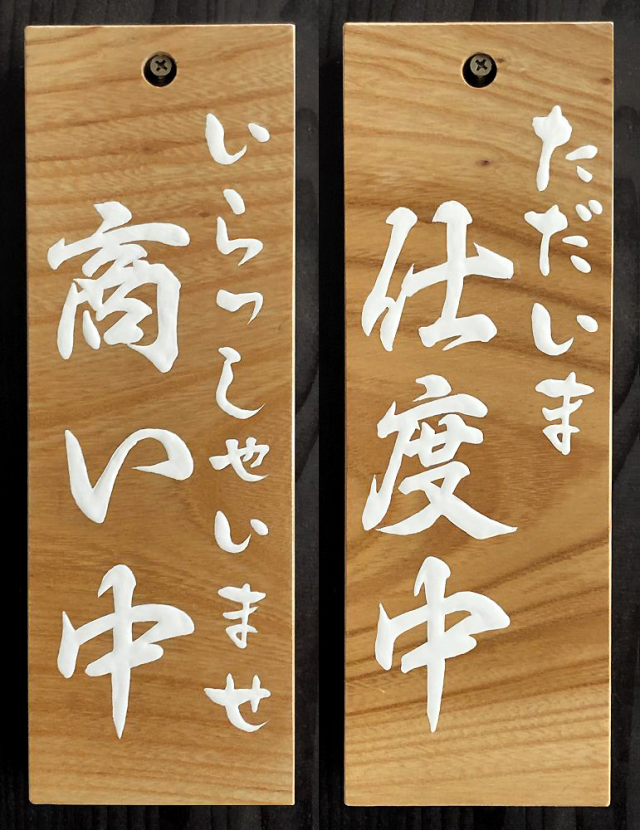 いらっしゃいませ
商い中
ただいま
仕度中